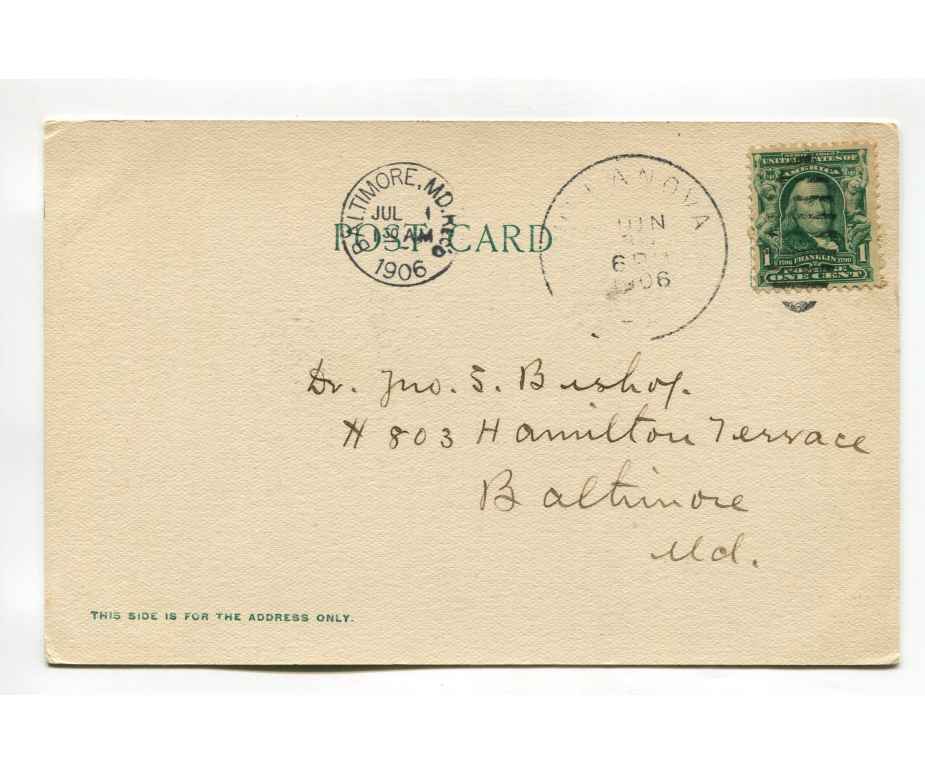 BALTIMORE, MD. REC'D
JUL 1
1 30 AM
1906
POST CARD
ANOVA
JUN
6 P
1906
UNITED STATES OF
AMERICA
1 FRANKLIN 1
ONE CENT
Dr. Jno. S. Bishop.
# 803 Hamilton Terrace
Baltimore
Md.
THIS SIDE IS FOR THE ADDRESS ONLY.